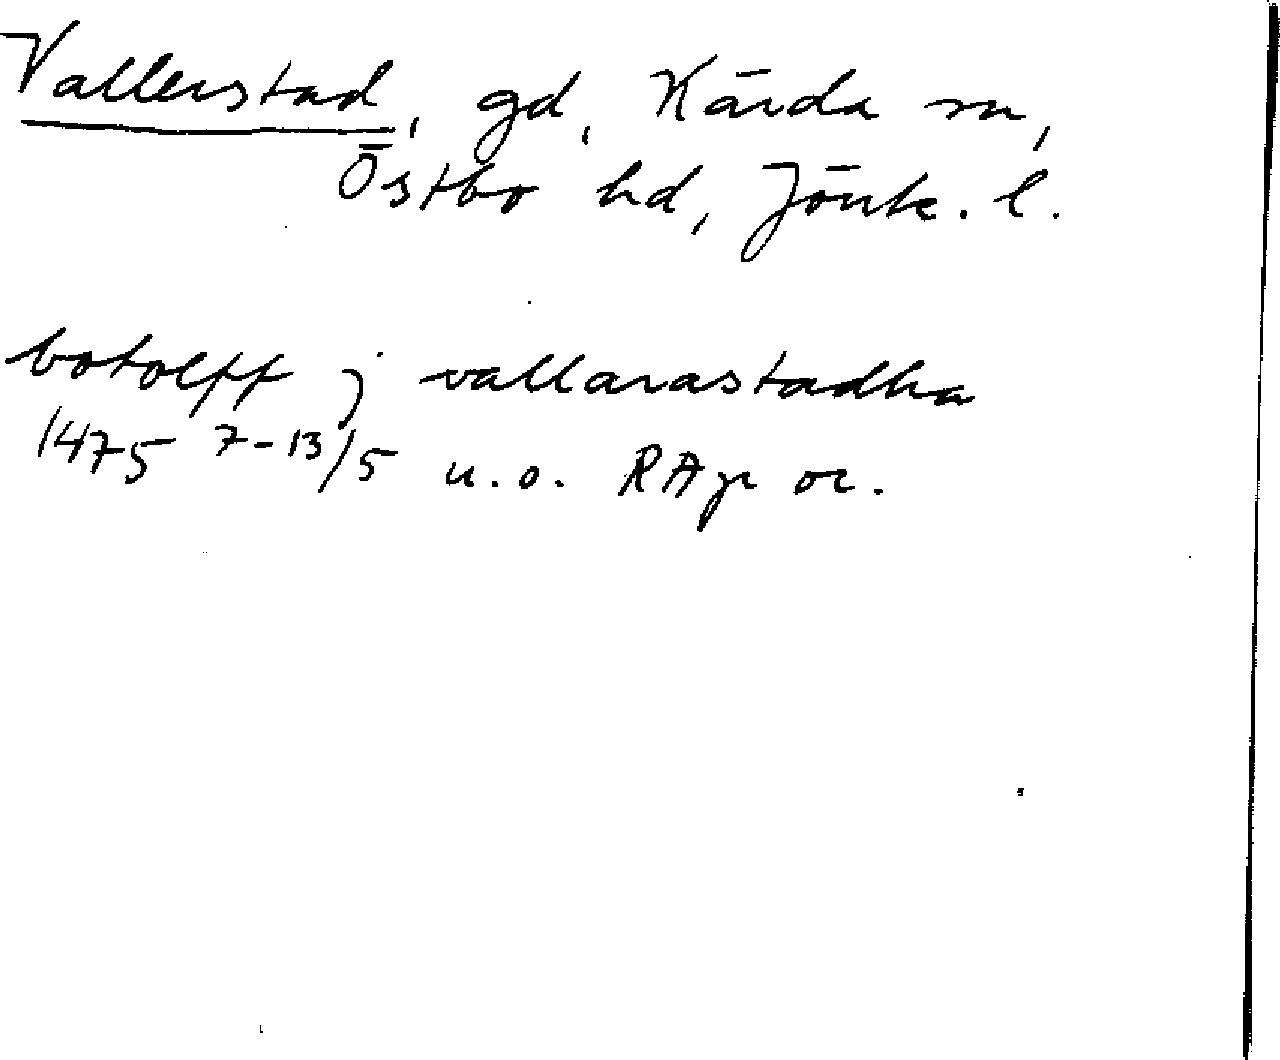 Vallerstad, gd, Kärda sn,
Östbo hd, Jönk. l.
botolff j vallarastadha
1475 7-13/5 u.o. RAp or.